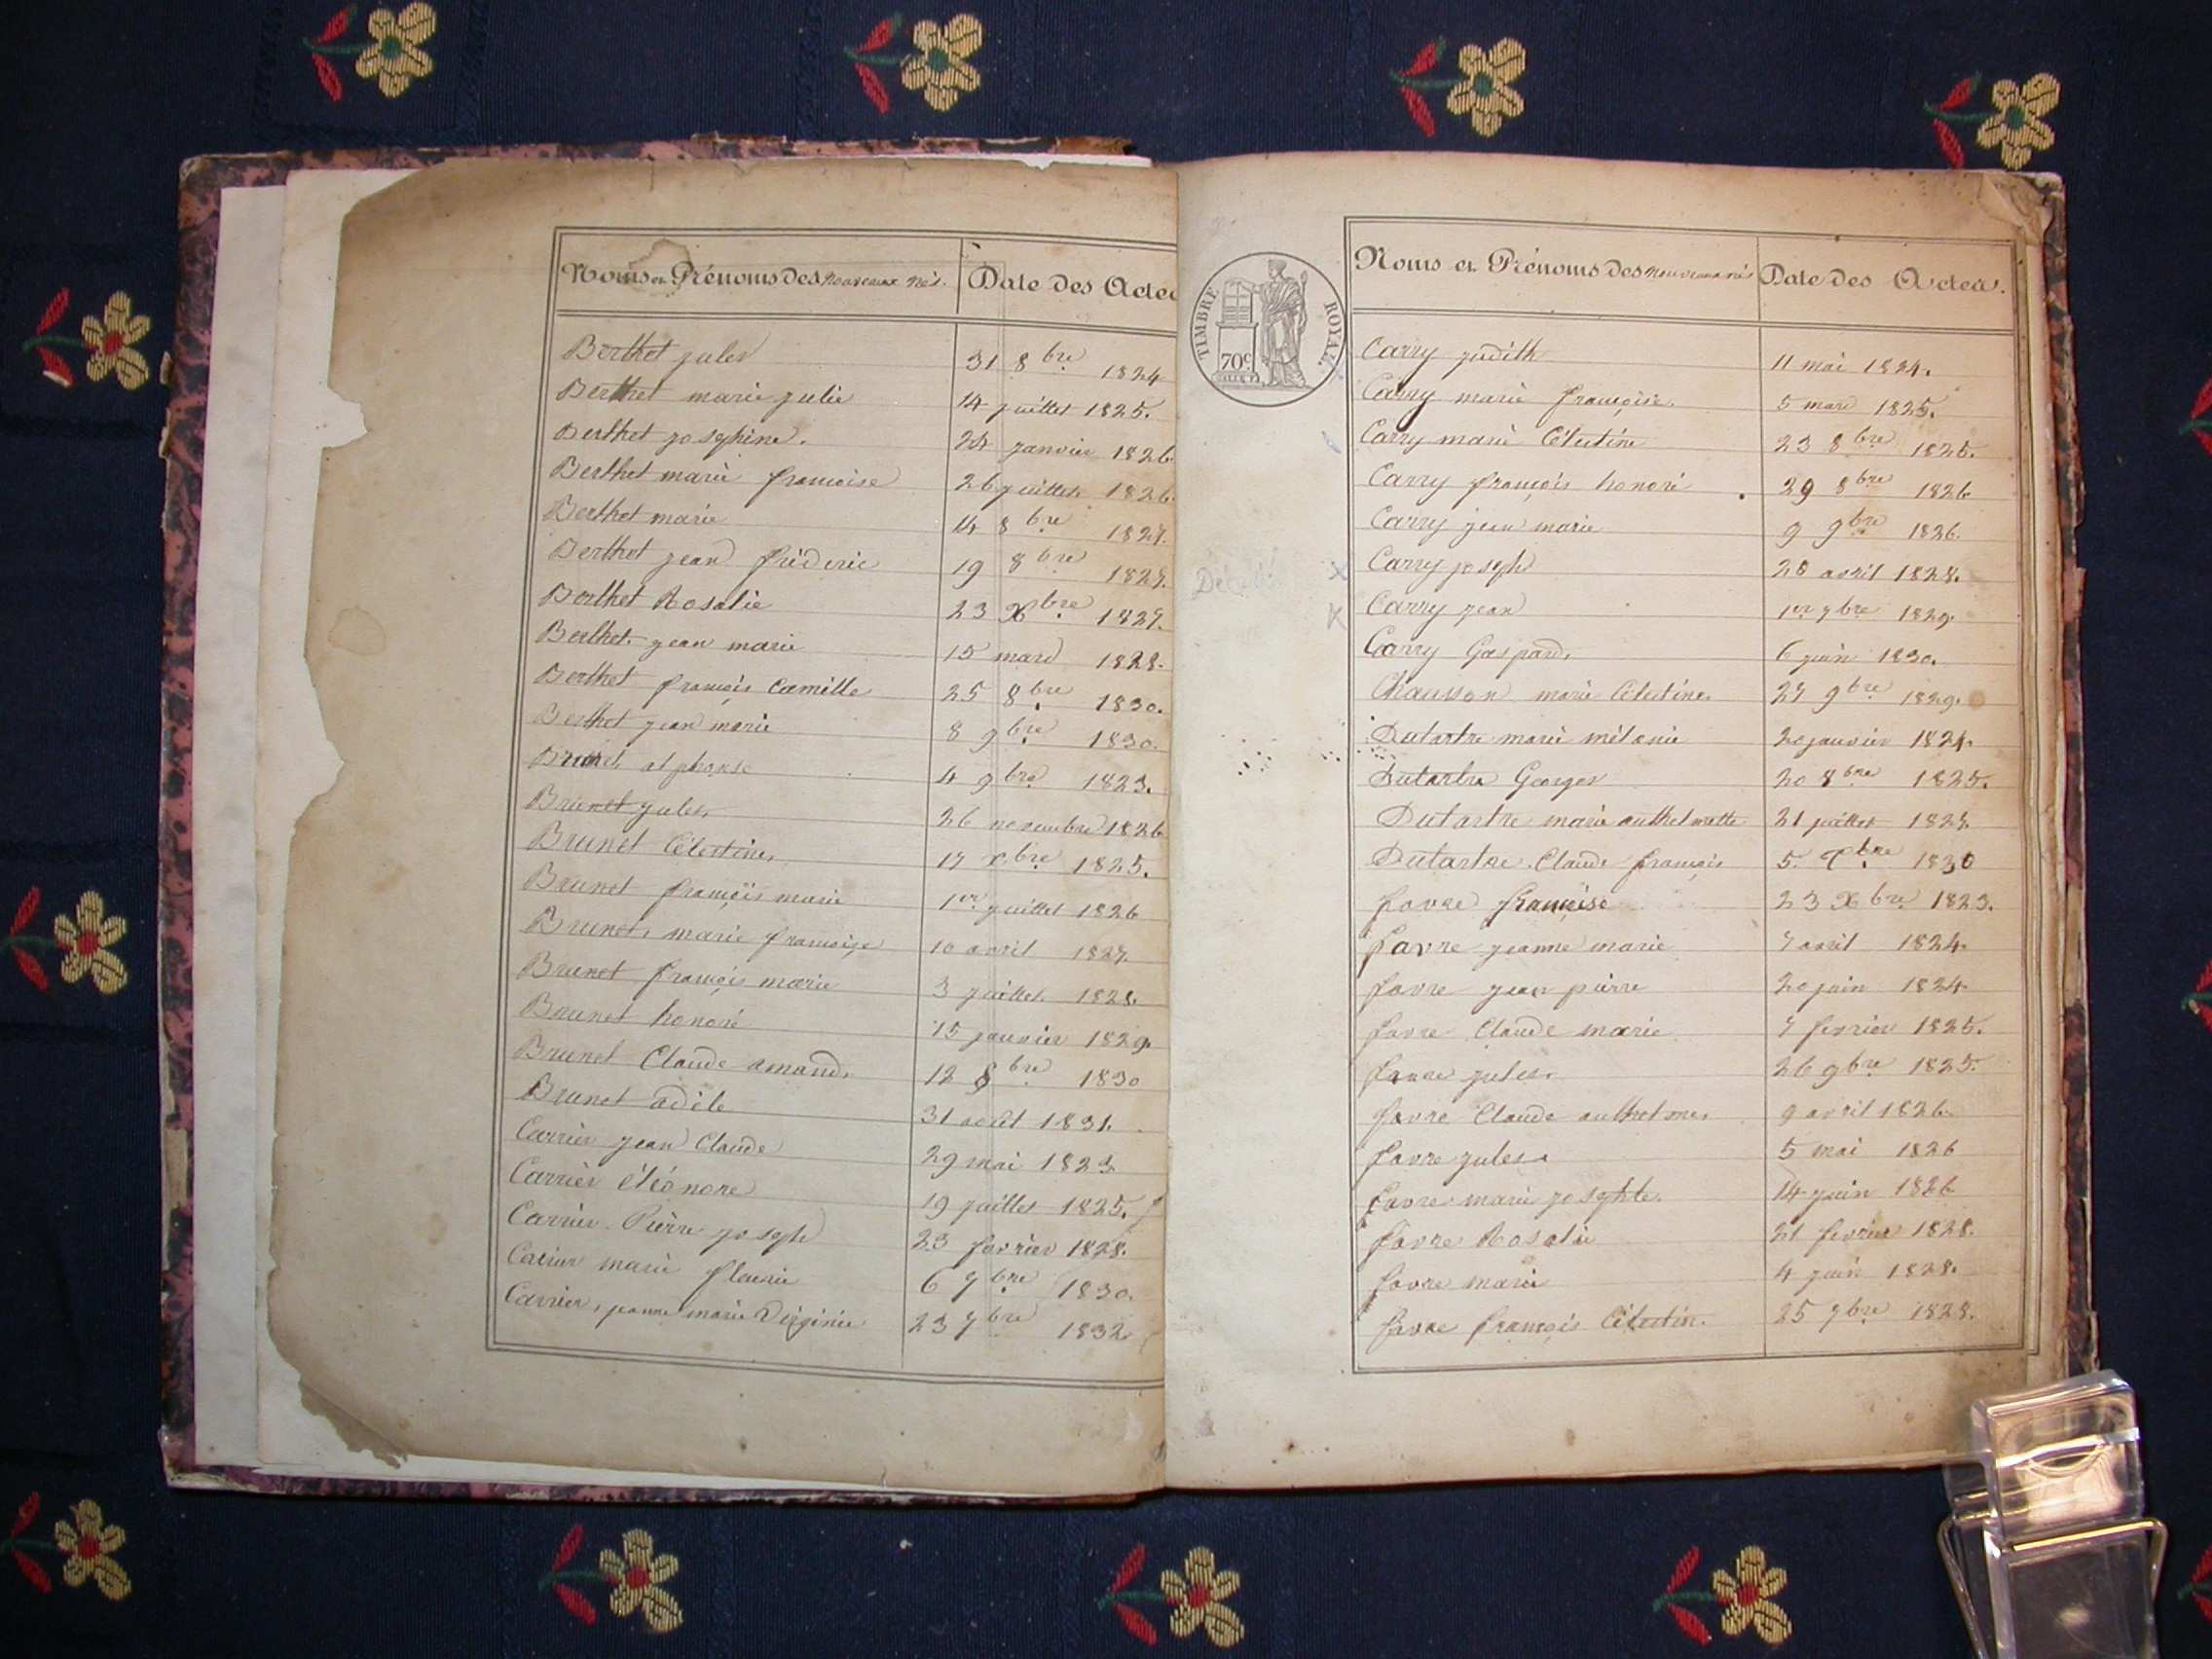 Noms et Prénoms des nouveaux nés. Date des Actes
Berthet jules 31 8bre 1824
Berthet marie julie 14 juillet 1825.
Berthet josephine. 24 janvier 1826
Berthet marie françoise 26 juillet 1826
Berthet marie 14 8bre 1827.
Berthet jean fréderic 19 8bre 1827.
Berthet Rosalie 23 Xbre 1827.
Berthet jean marie 15 mars 1828.
Berthet françois Camille 25 8bre 1830.
Berthet jean marie 8 9bre 1830.
Brunet alphonse 4 9bre 1823.
Brunet jules 26 novembre 1826
Brunet Célestine 17 xbre 1825.
Brunet françois marie 1er juillet 1826
Brunet marie françoise 10 avril 1827.
Brunet françois marie 3 juillet 1828.
Brunet honoré 15 janvier 1829.
Brunet Claude amand. 12 8bre 1830
Brunet adèle 31 août 1831.
Carrier jean Claude 29 mai 1823
Carrier éléonore 19 juillet 1825.
Carrier Pierre joseph 23 fevrier 1828.
Carrier marie fleurie 6 7bre 1830.
Carrier, jeanne marie Virginie 23 7bre 1832.
TIMBRE ROYAL
70c
Noms et Prénoms des nouveaux nés Date des Actes.
Carry judith 11 mai 1824.
Carry marie françoise. 5 mars 1825.
Carry marie Célestine 23 8bre 1825.
Carry françois honoré 29 8bre 1826
Carry jean marie 9 9bre 1826.
Carry joseph 20 avril 1828.
Carry jean 1er 7bre 1829.
Carry Gaspard. 6 juin 1830.
Chausson marie Célestine. 27 9bre 1829.
Dutartre marie mélanie 20 janvier 1824.
Dutartre Georges 20 8bre 1825.
Dutartre marie anthelmette 21 juillet 1827.
Dutartre Claude françois 5. Xbre 1830
favre françoise 23 Xbre 1823.
favre jeanne marie 7 avril 1824.
favre jean pierre 20 juin 1824
favre Claude marie 7 fevrier 1825.
favre jules. 26 9bre 1825.
favre Claude anthelme. 9 avril 1826.
favre jules. 5 mai 1826
favre marie josephte. 14 juin 1826
favre Rosalie 21 fevrier 1828.
favre marie 4 juin 1828.
favre françois Célestin. 25 7bre 1828.